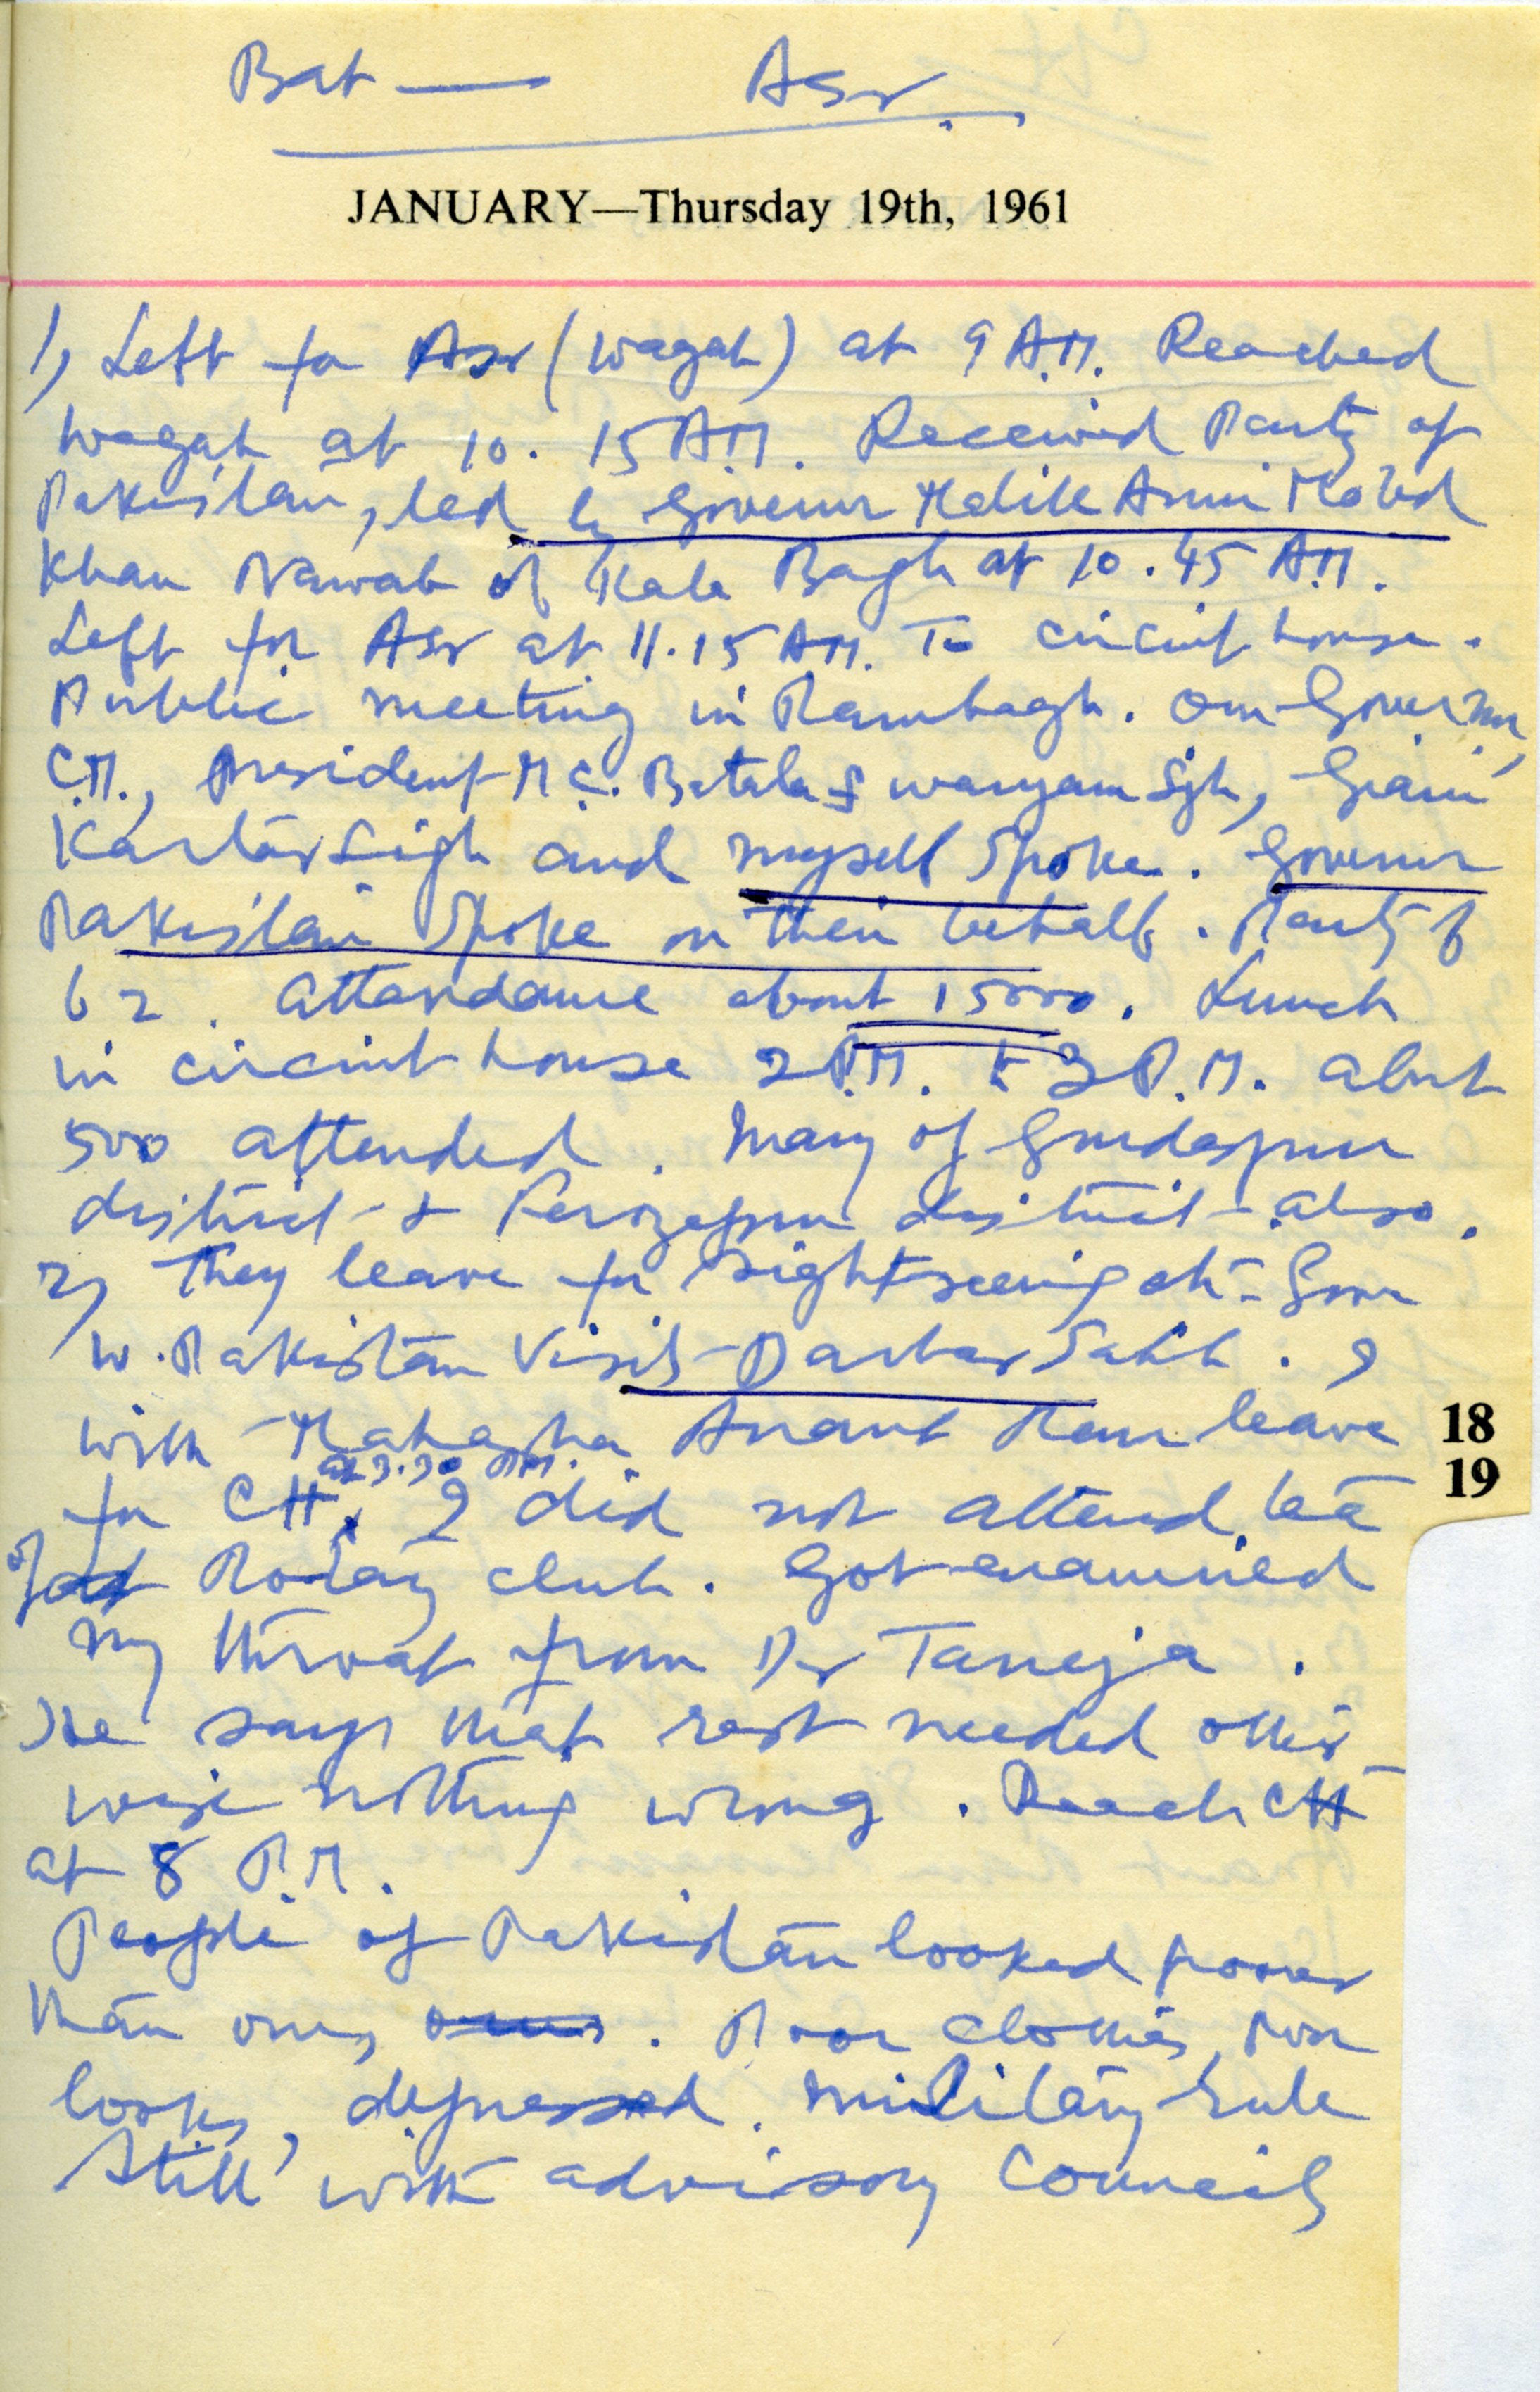 Bat — Asr.
JANUARY—Thursday 19th, 1961
1) Left for Asr (Wagah) at 9 A.M. Reached
Wagah at 10.15 A.M. Received Party of
Pakistan, led by Governor Malik Amir Mohd
Khan Nawab of Kala Bagh at 10.45 A.M.
Left for Asr at 11.15 A.M. To circuit house.
Public meeting in Rambagh. Our Governor,
C.M., President M.C. Batala S Waryam Sgh, Giani
Kartar Singh and myself spoke. Governor
Pakistan spoke on their behalf. Party of
62. Attendance about 15000. Lunch
in circuit house 2 P.M. to 3 P.M. about
500 attended. Many of Gurdaspur
district & Ferozepur district also.
2) They leave for sightseeing etc. Govr
W. Pakistan visits Darbar Sahib. I
with Mahasha Anant Ram leave
at 3.30 P.M.
for CH. I did not attend tea
of Rotary club. Got examined
my throat from Dr Taneja.
He says that rest needed other-
wise nothing wrong. Reach CH
at 8 P.M.
People of Pakistan looked poorer
than ours. Poor clothes, poor
looks, depressed. Military rule
still with advisory councils
18
19